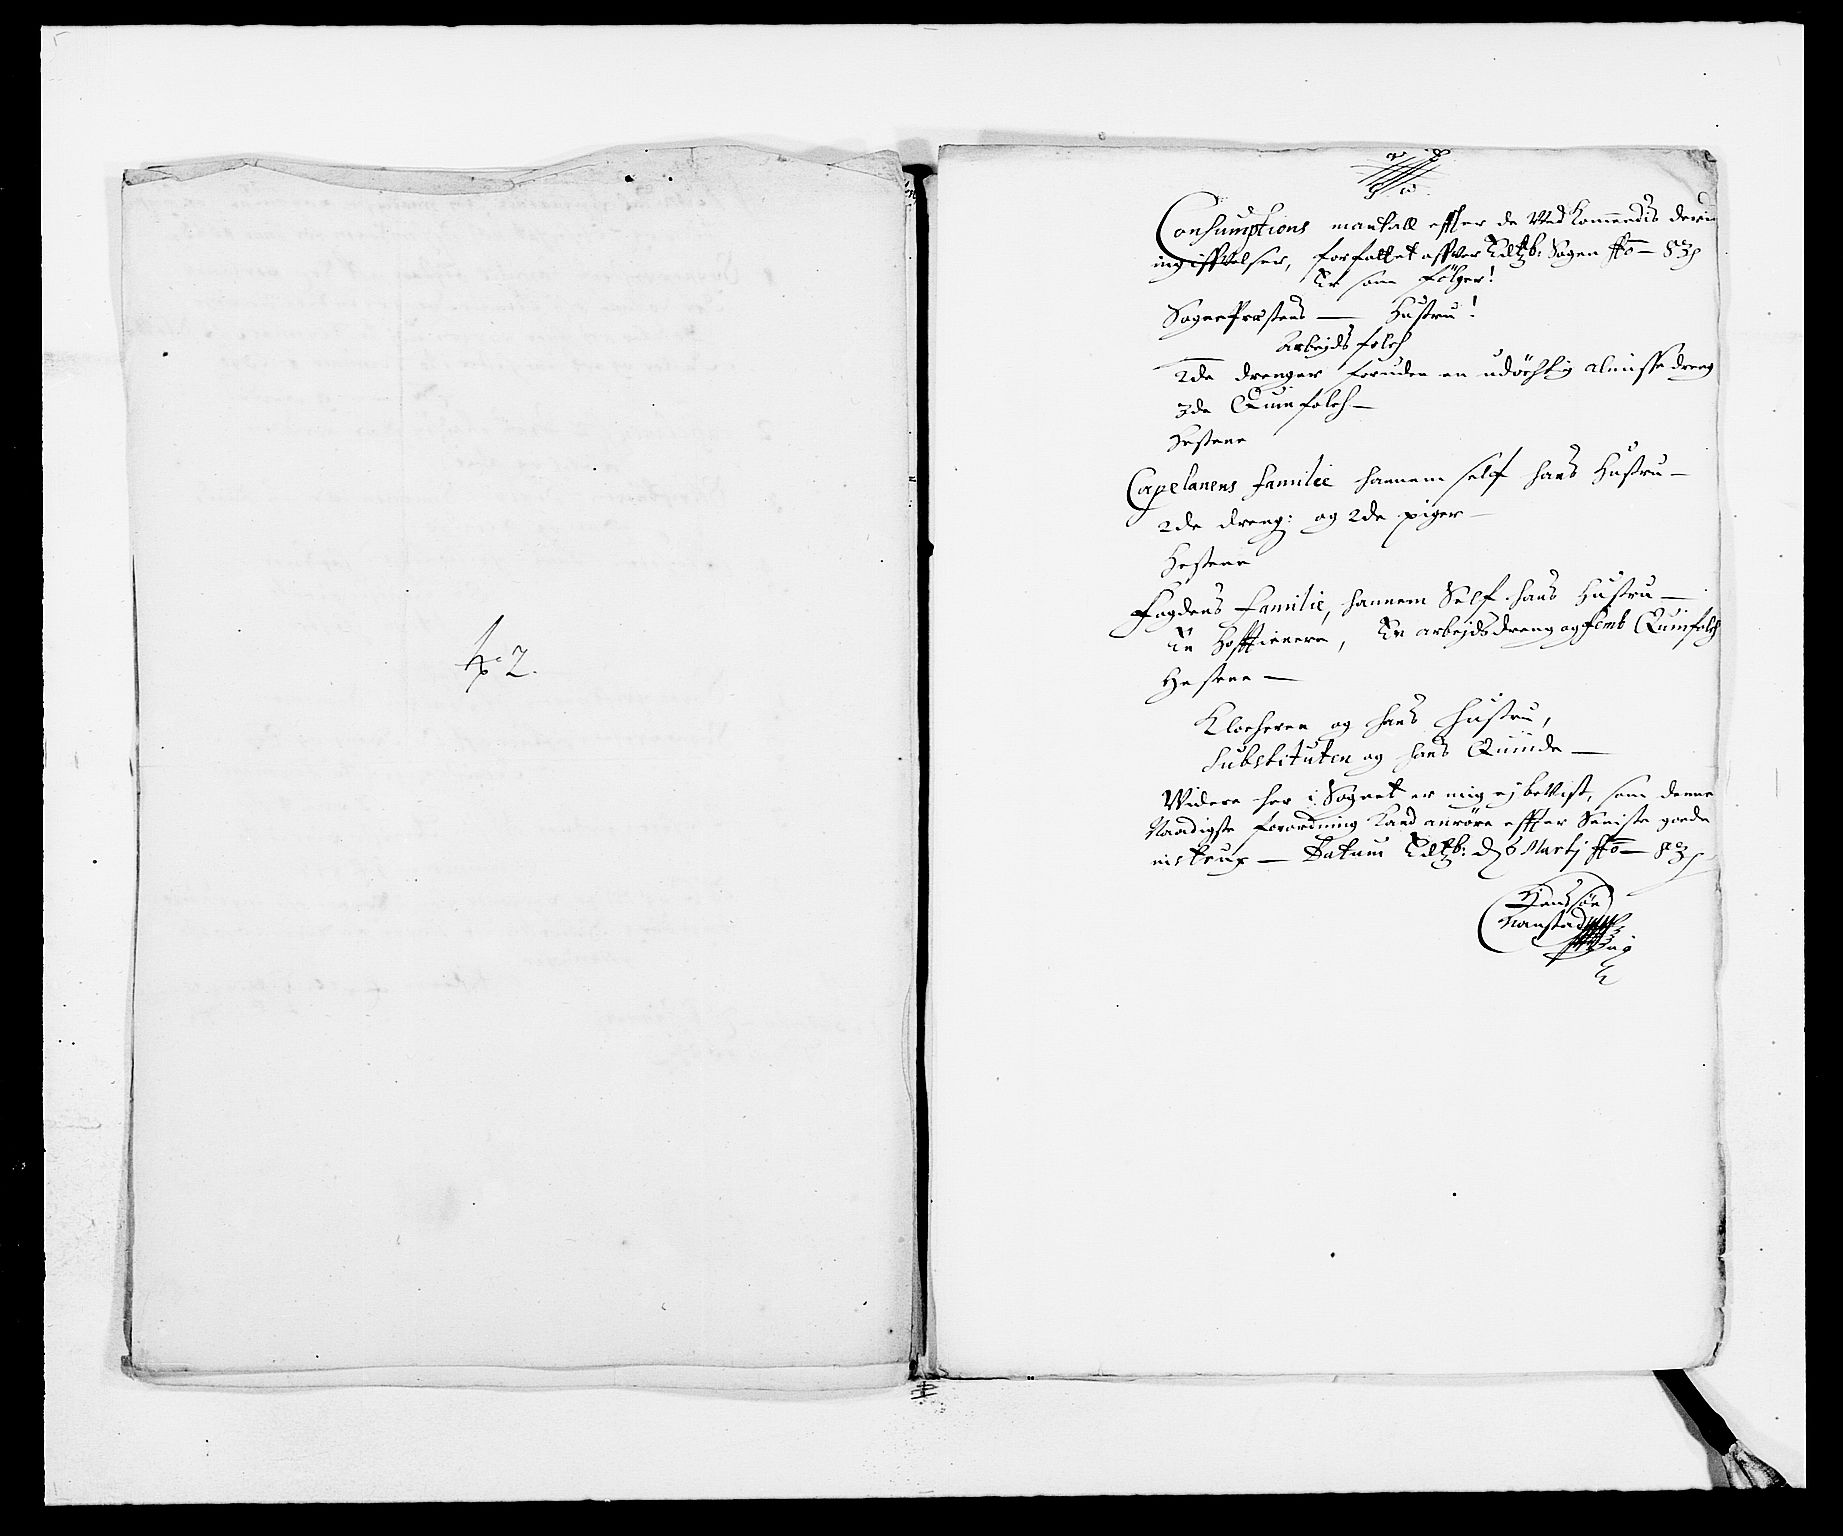 No 2.
Consumptions mantall effter de Ved Kommendis deris
ingiffvelser, forfattet offver Sogen Ao 83
Er som følger!
SognePræstens — Hustru!
Arbejds folch
2de drenger foruden en udöchtig almisse dreng
3de Quinfolch —
Hestene
Capelanens familie hannem self hans Hustru —
2de dreng: og 2de piger —
Hestene
Fogdens Familie, hannem Self hans Hustru —
En Hofftienere, En arbejdsdreng og femb Quinfolch
Hestene —
Klocheren og hans hustru,
Substituten og hans Quinde —
Widere her i Sognet er mig ej beVist, som denne
Naadigste forordning Kand anröre effter Seniste goede
— Datum d 6 Martij Ao 83